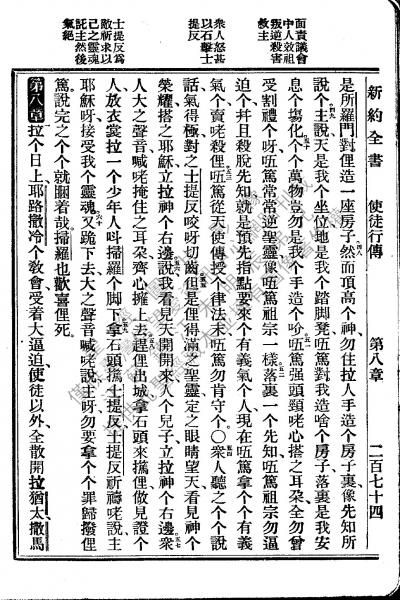 面責議會
中人效祖
叛逆殺害
救主
衆人怒甚
以石擊士
提反
士提反爲
敵祈求以
己之靈魂
託主然後
氣絕
新約全書 使徒行傳 第八章 二百七十四
是所羅門對俚造一座房子然而頂高个神勿住拉人手造个房子裏像先知所
說个主說天是我个坐位地是我个踏脚凳㕶篤對我造啥个房子落裏是我安
息个塲化个个萬物豈勿是我个手造个吤㕶篤强頭頸咾心搭之耳朵全勿曾
受割禮个呀㕶篤常常逆聖靈像㕶篤祖宗一樣落裏一个先知㕶篤祖宗勿逼
迫个幷且殺脫先知就是預先指點要來个有義氣个人現在㕶篤拿个个有義
氣个賣咾殺俚㕶篤從天使傳授个律法末㕶篤勿肯守个〇衆人聽之个个說
話氣得極對之士提反咬呀切齒但是俚得滿之聖靈定之眼睛望天看見神个
榮耀搭之耶穌立拉神个右邊說我看見天開開來人个兒子立拉神个右邊衆
人大之聲音喊咾掩住之耳朵齊心擁上去趕俚出城拿石頭來擲俚做見證个
人放衣裳拉一个少年人呌掃羅个脚下拿石頭擲士提反士提反祈禱咾說主
耶穌呀接受我个靈魂又跪下去大之聲音喊咾說主呀勿要拿个个罪歸撥俚
篤說完之个个就瞓着哉掃羅也歡喜俚死
第八章拉个日上耶路撒冷个敎會受着大逼迫使徒以外全散開拉猶太撒馬